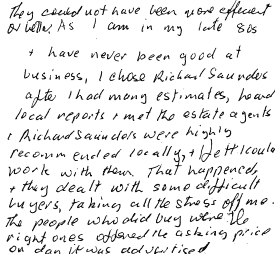 They could not have been more efficient
or better. As I am in my late 80s
+ have never been good at
business, I chose Richard Saunders
after I had many estimates, heard
local reports + met the estate agents
& Richard Saunders were highly
recommended locally, + felt I could
work with them. That happened,
+ they dealt with some difficult
buyers, taking all the stress off me.
The people who did buy were the
right ones offered the asking price
on day it was advertised